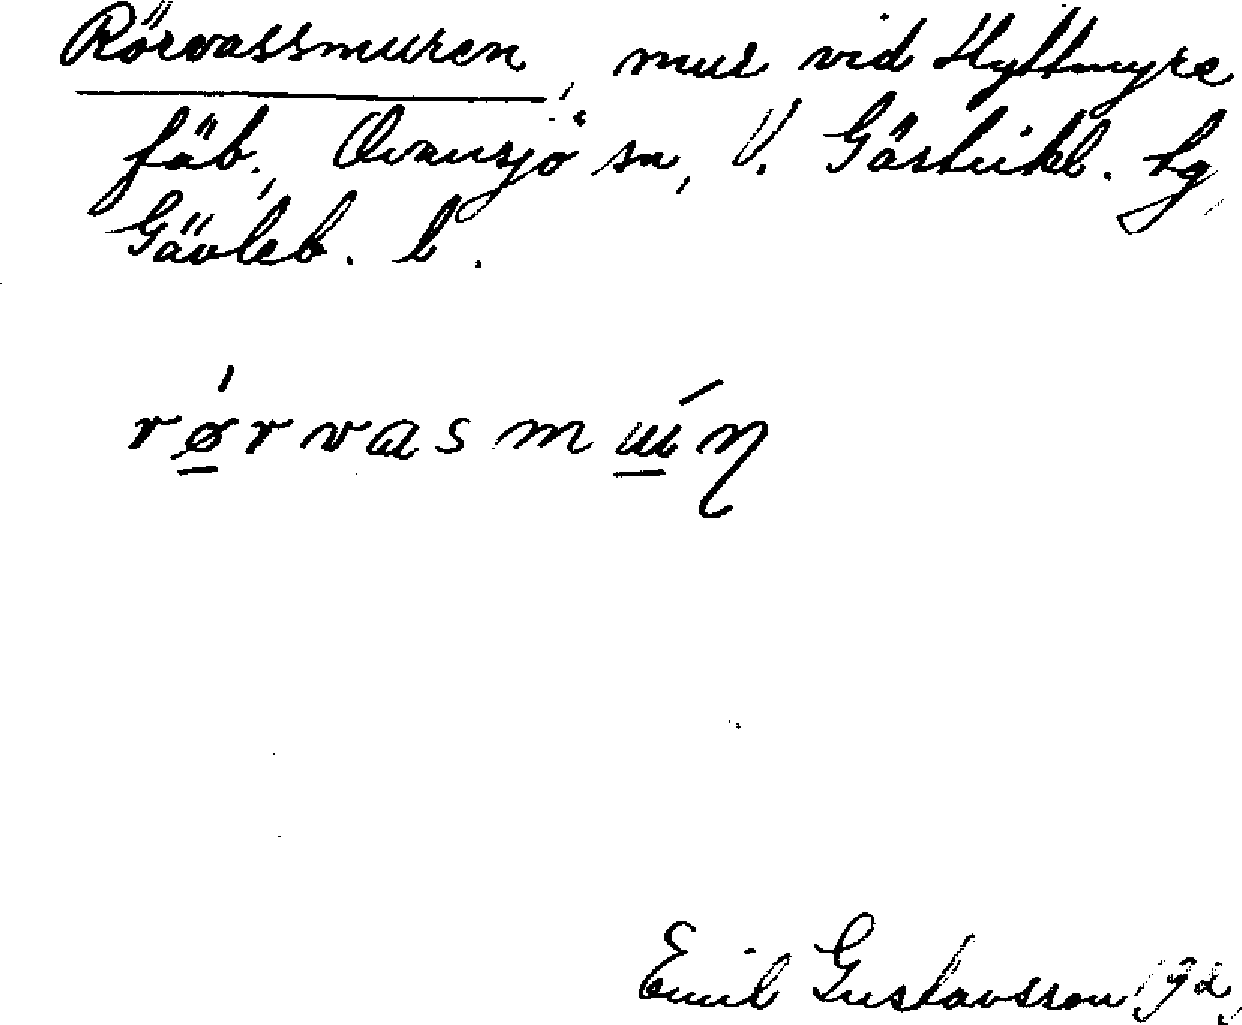 Rörvassmuren, mur vid Hyttmyre
fäb., Ovansjö sn, V. Gästrikl. tg
Gävleb. l.
rørvasmun̥
Emil Gustavsson 192